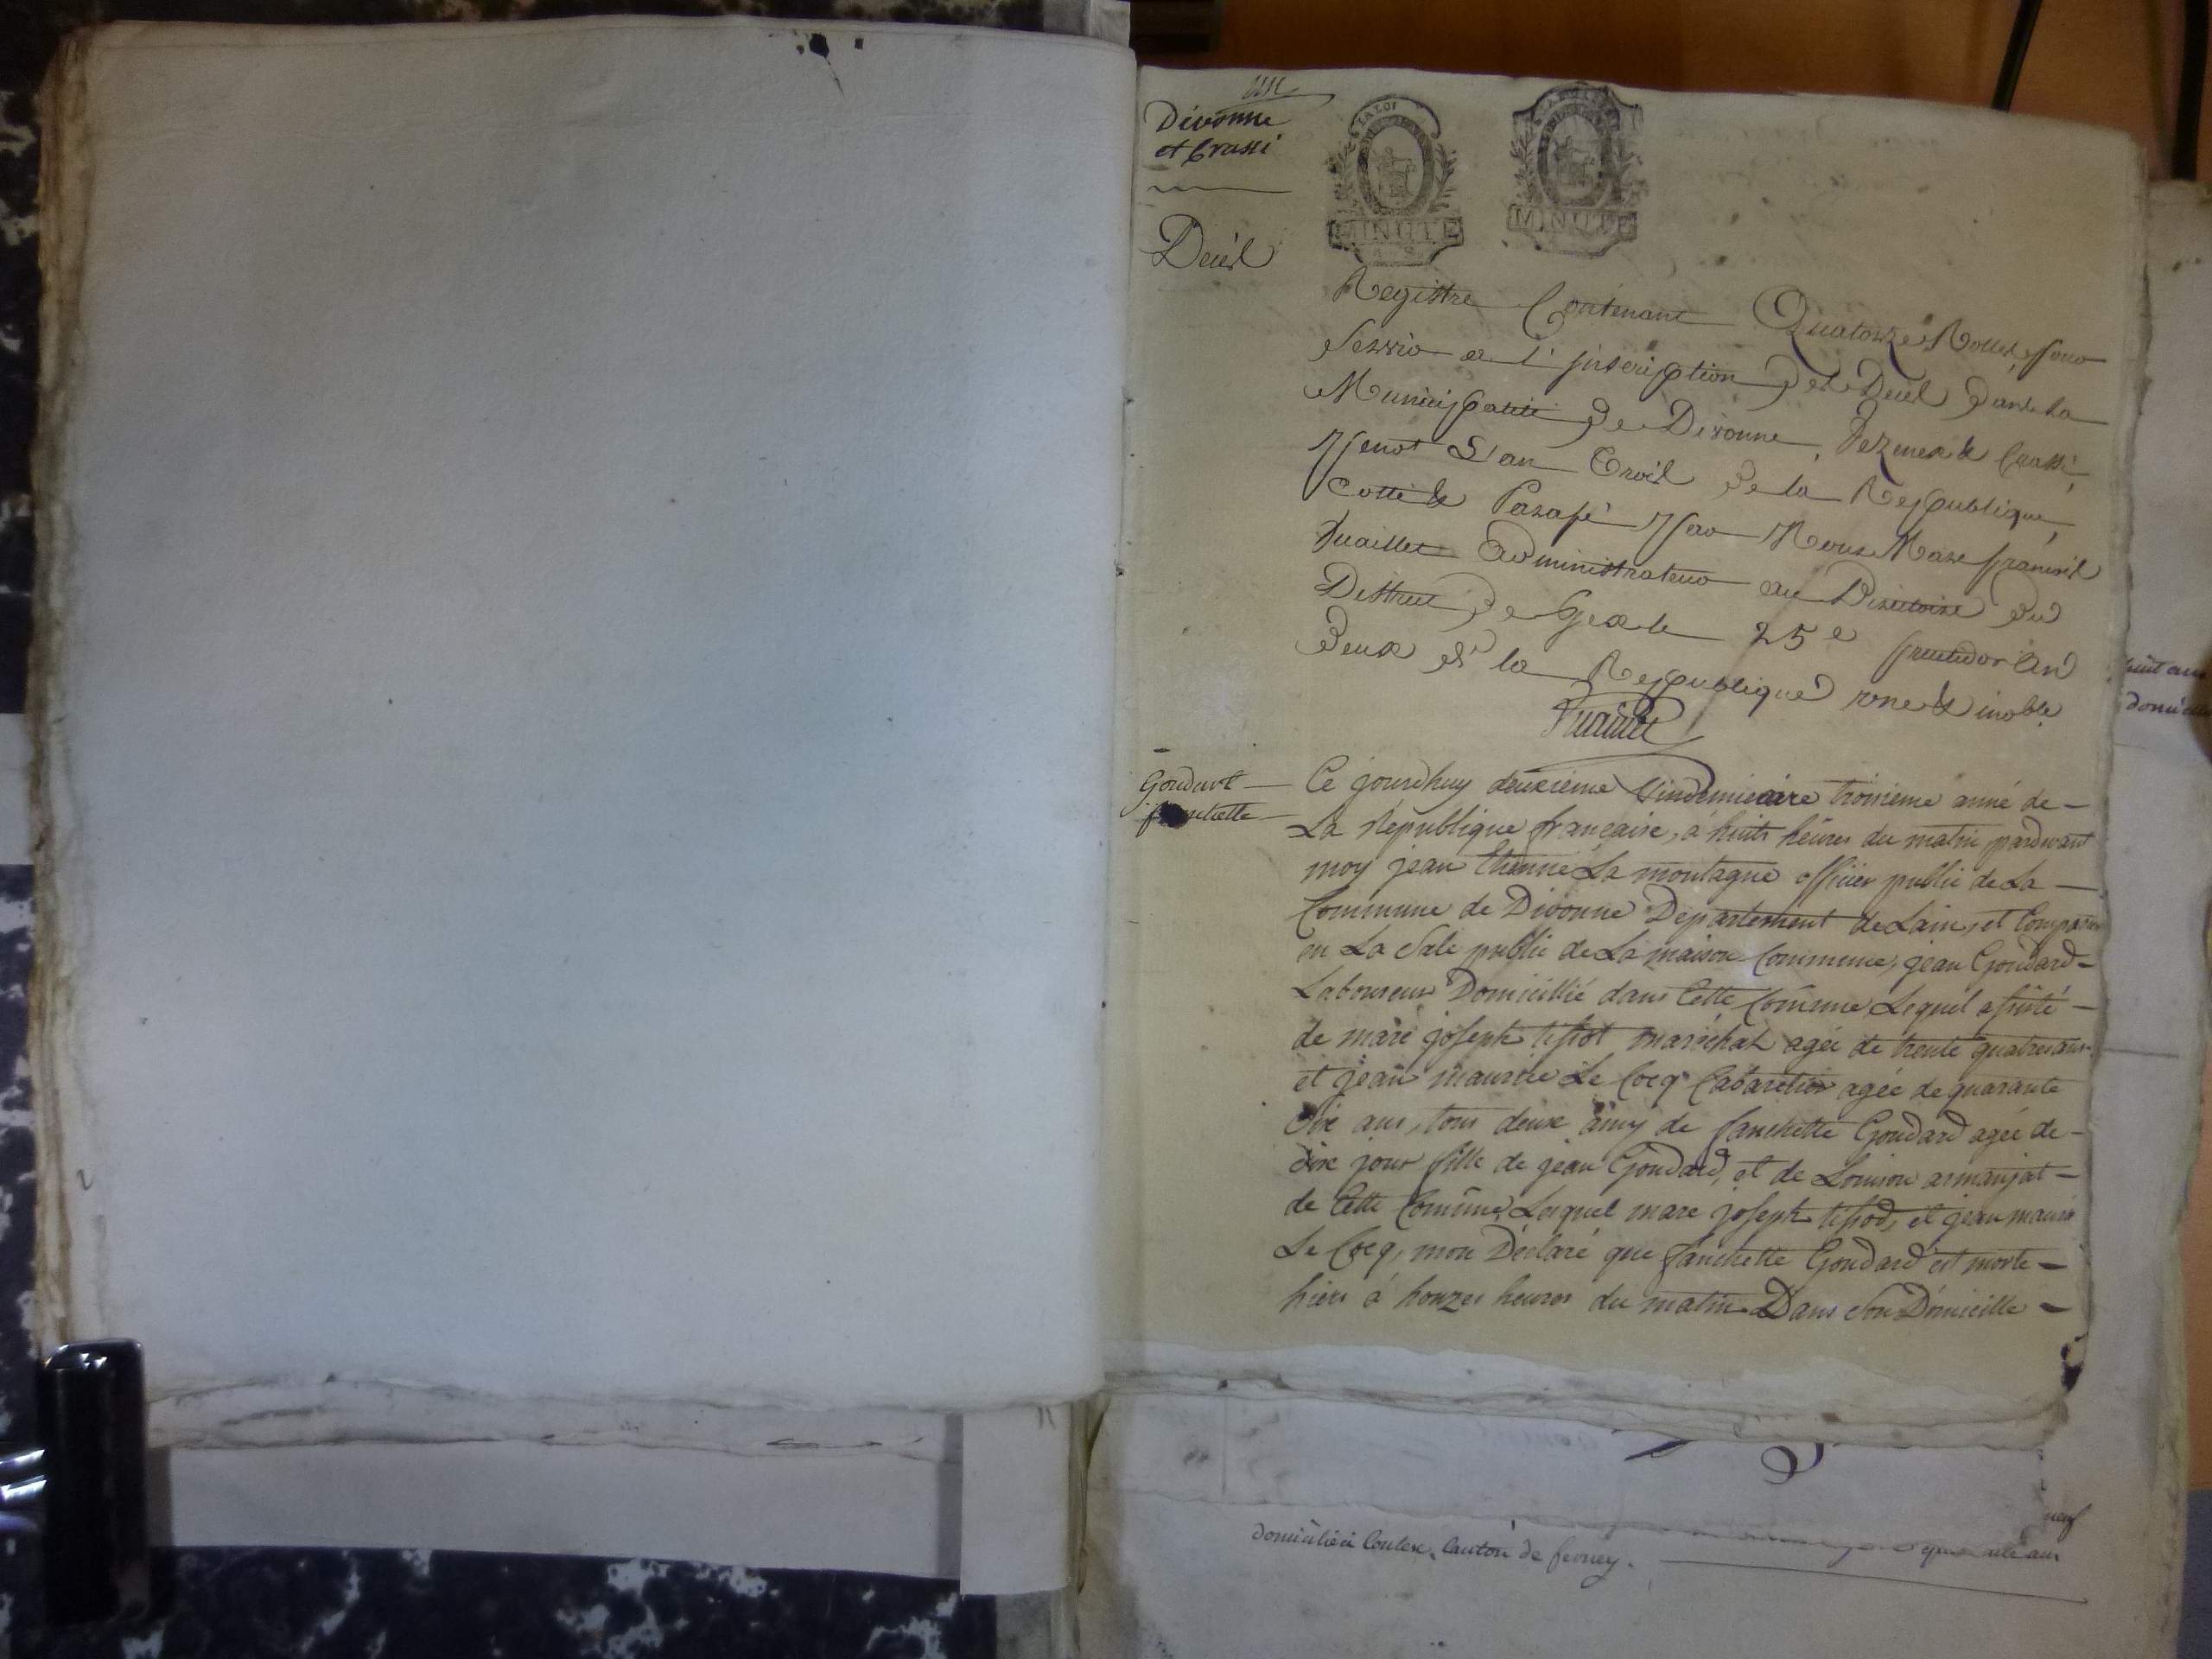 Divonne
et Crassi
Décés
LA LOI
MINUTE
MINUTE
Registre Contenant Quatorze Rolles pour
servir a l'inscription des Décés dans la
Municipalité de Divonne, Vezenex & Crassi,
pour L'an Trois de la Republique,
Cotté & Parafé par Nous Marc françois
Administrateur au Directoire du
District de Gex le 25e fructidor an
Deux de la Republique une & indble
Goudart
Ce jourdhuy deuxieme Vindemieaire troisieme anné de
La République française, a huits heures du matin pardevant
moy jean Etienne La montagne officier public de La
Commune de Divonne Departement de Lain, et Comparu
en La Sale public de La maison Commune, jean Goudard
Laboureur Domicillié dans Cette Comune Lequel asisté
de marc joseph tissot maréchal agée de trente quatres ans
et jean maurice Le Cocq Cabaretier agée de quarante
Six ans, tous deux amy de fanchette Goudard agée de
dix jour fille de jean Goudard, et de Louison armanjat
de Cette Comune, Lesquel marc joseph tissod, et jean mauris
Le Cocq, mon Déclaré que fanchette Goudard est morte
hiers á honzes heures du matin Dans Son Domicille
huit ans
neuf
domicilié à Conlex, Canton de ferney.